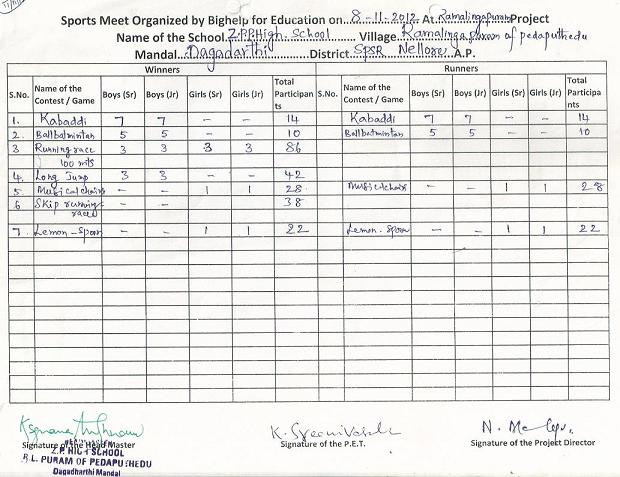 Sports Meet Organized by Bighelp for Education on 8-11-2012 At Ramalingapuram Project
Name of the School Z.P.P.High School Village Ramalingapuram of pedaputhedu
Mandal Dagadarthi District SPSR Nellore A.P.
Winners Runners
S.No. Name of the Contest / Game Boys (Sr) Boys (Jr) Girls (Sr) Girls (Jr) Total Participan ts S.No. Name of the Contest / Game Boys (Sr) Boys (Jr) Girls (Sr) Girls (Jr) Total Participa nts
1. Kabaddi 7 7 - - 14 Kabaddi 7 7 - - 14
2. Ballbatmintan 5 5 - - 10 Ballbatmintan 5 5 - - 10
3 Running race 3 3 3 3 86
100 mts
4. Long Jump 3 3 - - 42
5. Musical chairs - - 1 1 28 Musical chairs - - 1 1 28
6 Skip running - - 38
race
7. Lemon-Spoon - - 1 1 22 Lemon-Spoon - - 1 1 22
K. Sreenivasulu
Signature of the Head Master Signature of the P.E.T. Signature of the Project Director
Z.P. HIGH SCHOOL
R.L. PURAM OF PEDAPUTHEDU
Dagadharthi Mandal